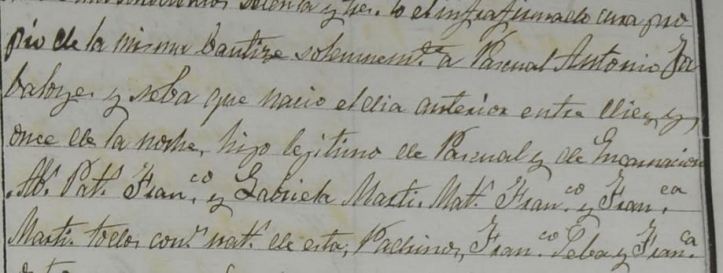 setenta y tres. Yo el infrafirmado cura pro
pio de la misma bautize solemnemte. a Pascual Antonio
y Seba que nacio el dia anterior entre diez y
once de la noche, hijo legitimo de Pascual y de Encarnacion
Ab.s Pat.s Fran.co y Gabriela Marti. Mat.s Fran.co y Fran.ca
Marti. todos con.s nat.s de esta, Padrinos, Fran.co Seba y Fran.ca